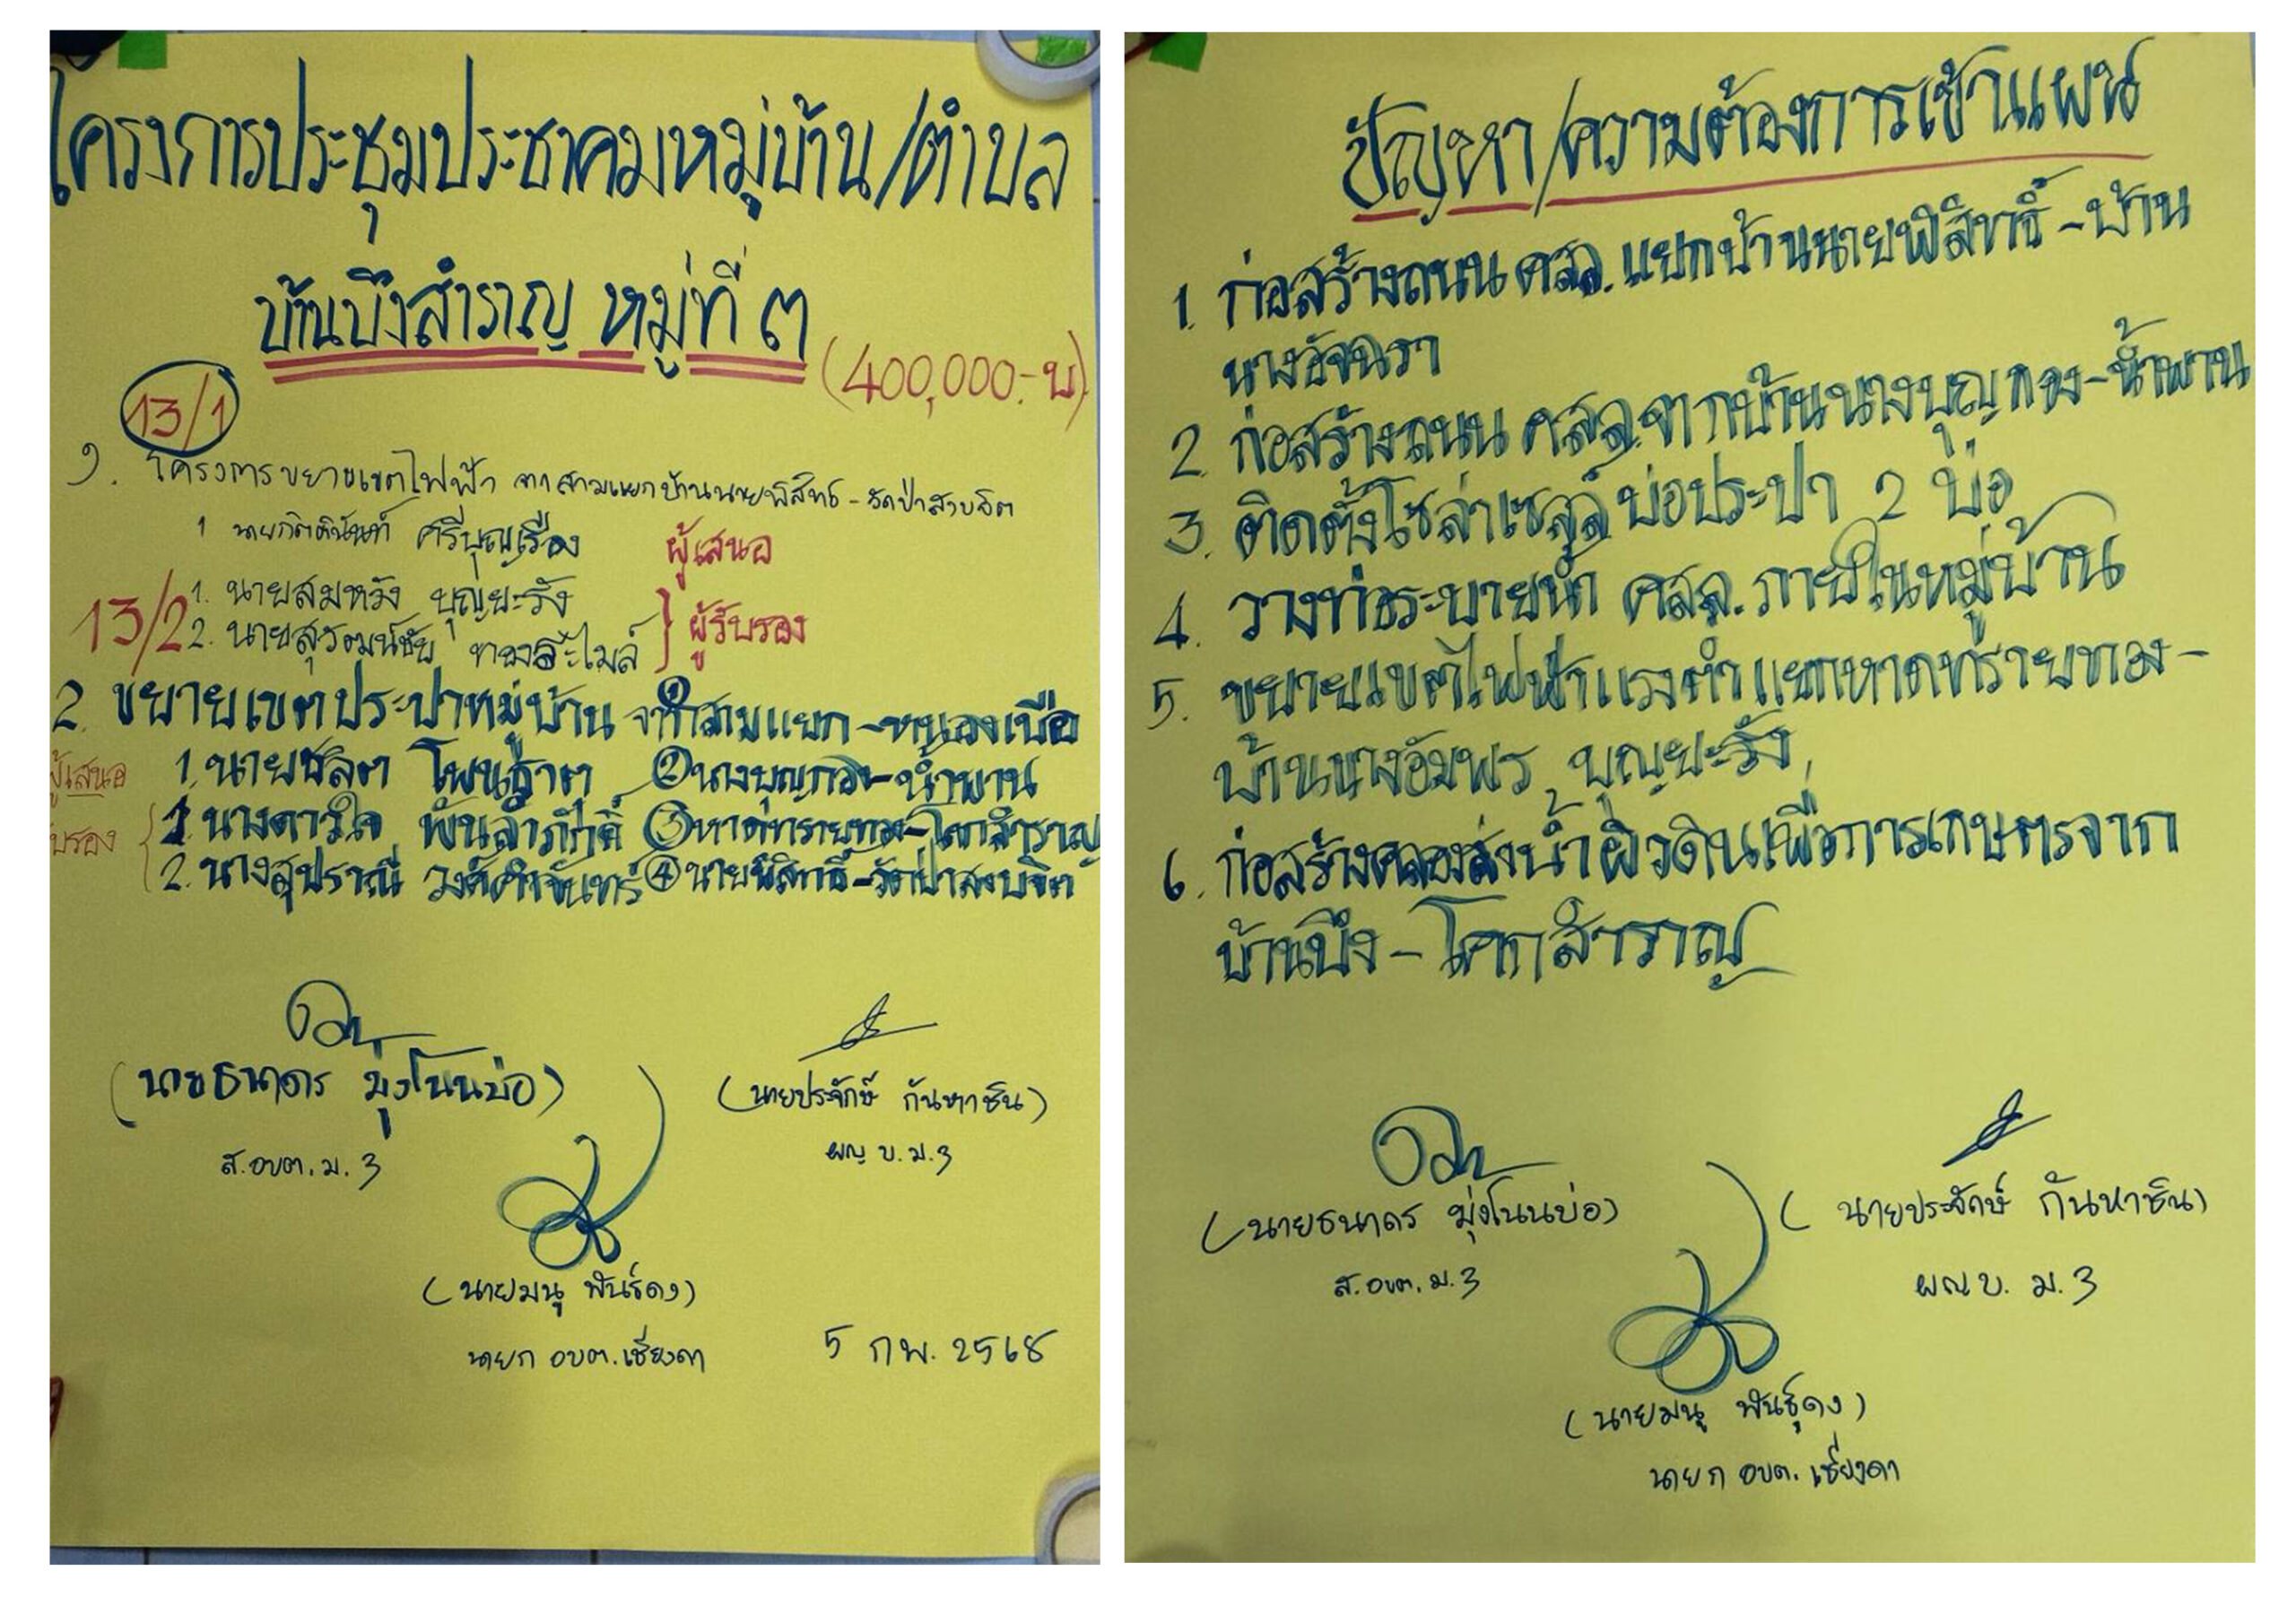 โครงการประชุมประชาคมหมู่บ้าน/ตำบล
บ้านบึงสำราญ หมู่ที่ ๓
(400,000.-บ)
13/1
๑. โครงการขยายเขตไฟฟ้า จากสามแยกบ้านนายพิสิทธิ์ - วัดป่าสงบจิต
1 นายกิตตินันท์ ศรีบุญเรือง ผู้เสนอ
13/2 1. นายสมหวัง บุญยะรัง
2. นายสุวัฒน์ชัย ทองละไมล์ } ผู้รับรอง
2. ขยายเขตประปาหมู่บ้าน ① จากสามแยก - หนองเบือ
ผู้เสนอ 1. นายชลิต โพนธาตุ ② นางบุญกอง - น้ำพาน
รับรอง { 1. นางดาวใจ พันลำภักดิ์ ③ หาดทรายทอง - โคกสำราญ
2. นางสุปราณี วงค์คำจันทร์ ④ นายพิสิทธิ์ - วัดป่าสงบจิต
(นายธนากร มุ่งโนนบ่อ) (นายประจักษ์ กันหาชิน)
ส.อบต.ม.3 ผญ บ.ม.3
(นายมนู พันธ์ดง)
นายก อบต.เชียงดา 5 กพ. 2568
ปัญหา/ความต้องการเข้าแผน
1. ก่อสร้างถนน คสล. แยกบ้านนายพิสิทธิ์ - บ้าน
นางอัจฉรา
2. ก่อสร้างถนน คสล. จากบ้านนางบุญกอง - น้ำพาน
3. ติดตั้งโซล่าเซลล์ บ่อประปา 2 บ่อ
4. วางท่อระบายน้ำ คสล. ภายในหมู่บ้าน
5. ขยายเขตไฟฟ้าแรงต่ำ แยกหาดทรายทอง -
บ้านนางอัมพร บุญยะรัง
6. ก่อสร้างคลองส่งน้ำผิวดินเพื่อการเกษตรจาก
บ้านบึง - โคกสำราญ
(นายธนากร มุ่งโนนบ่อ) (นายประจักษ์ กันหาชิน)
ส.อบต.ม.3 ผญ บ. ม.3
(นายมนู พันธุ์ดง)
นายก อบต. เชียงดา